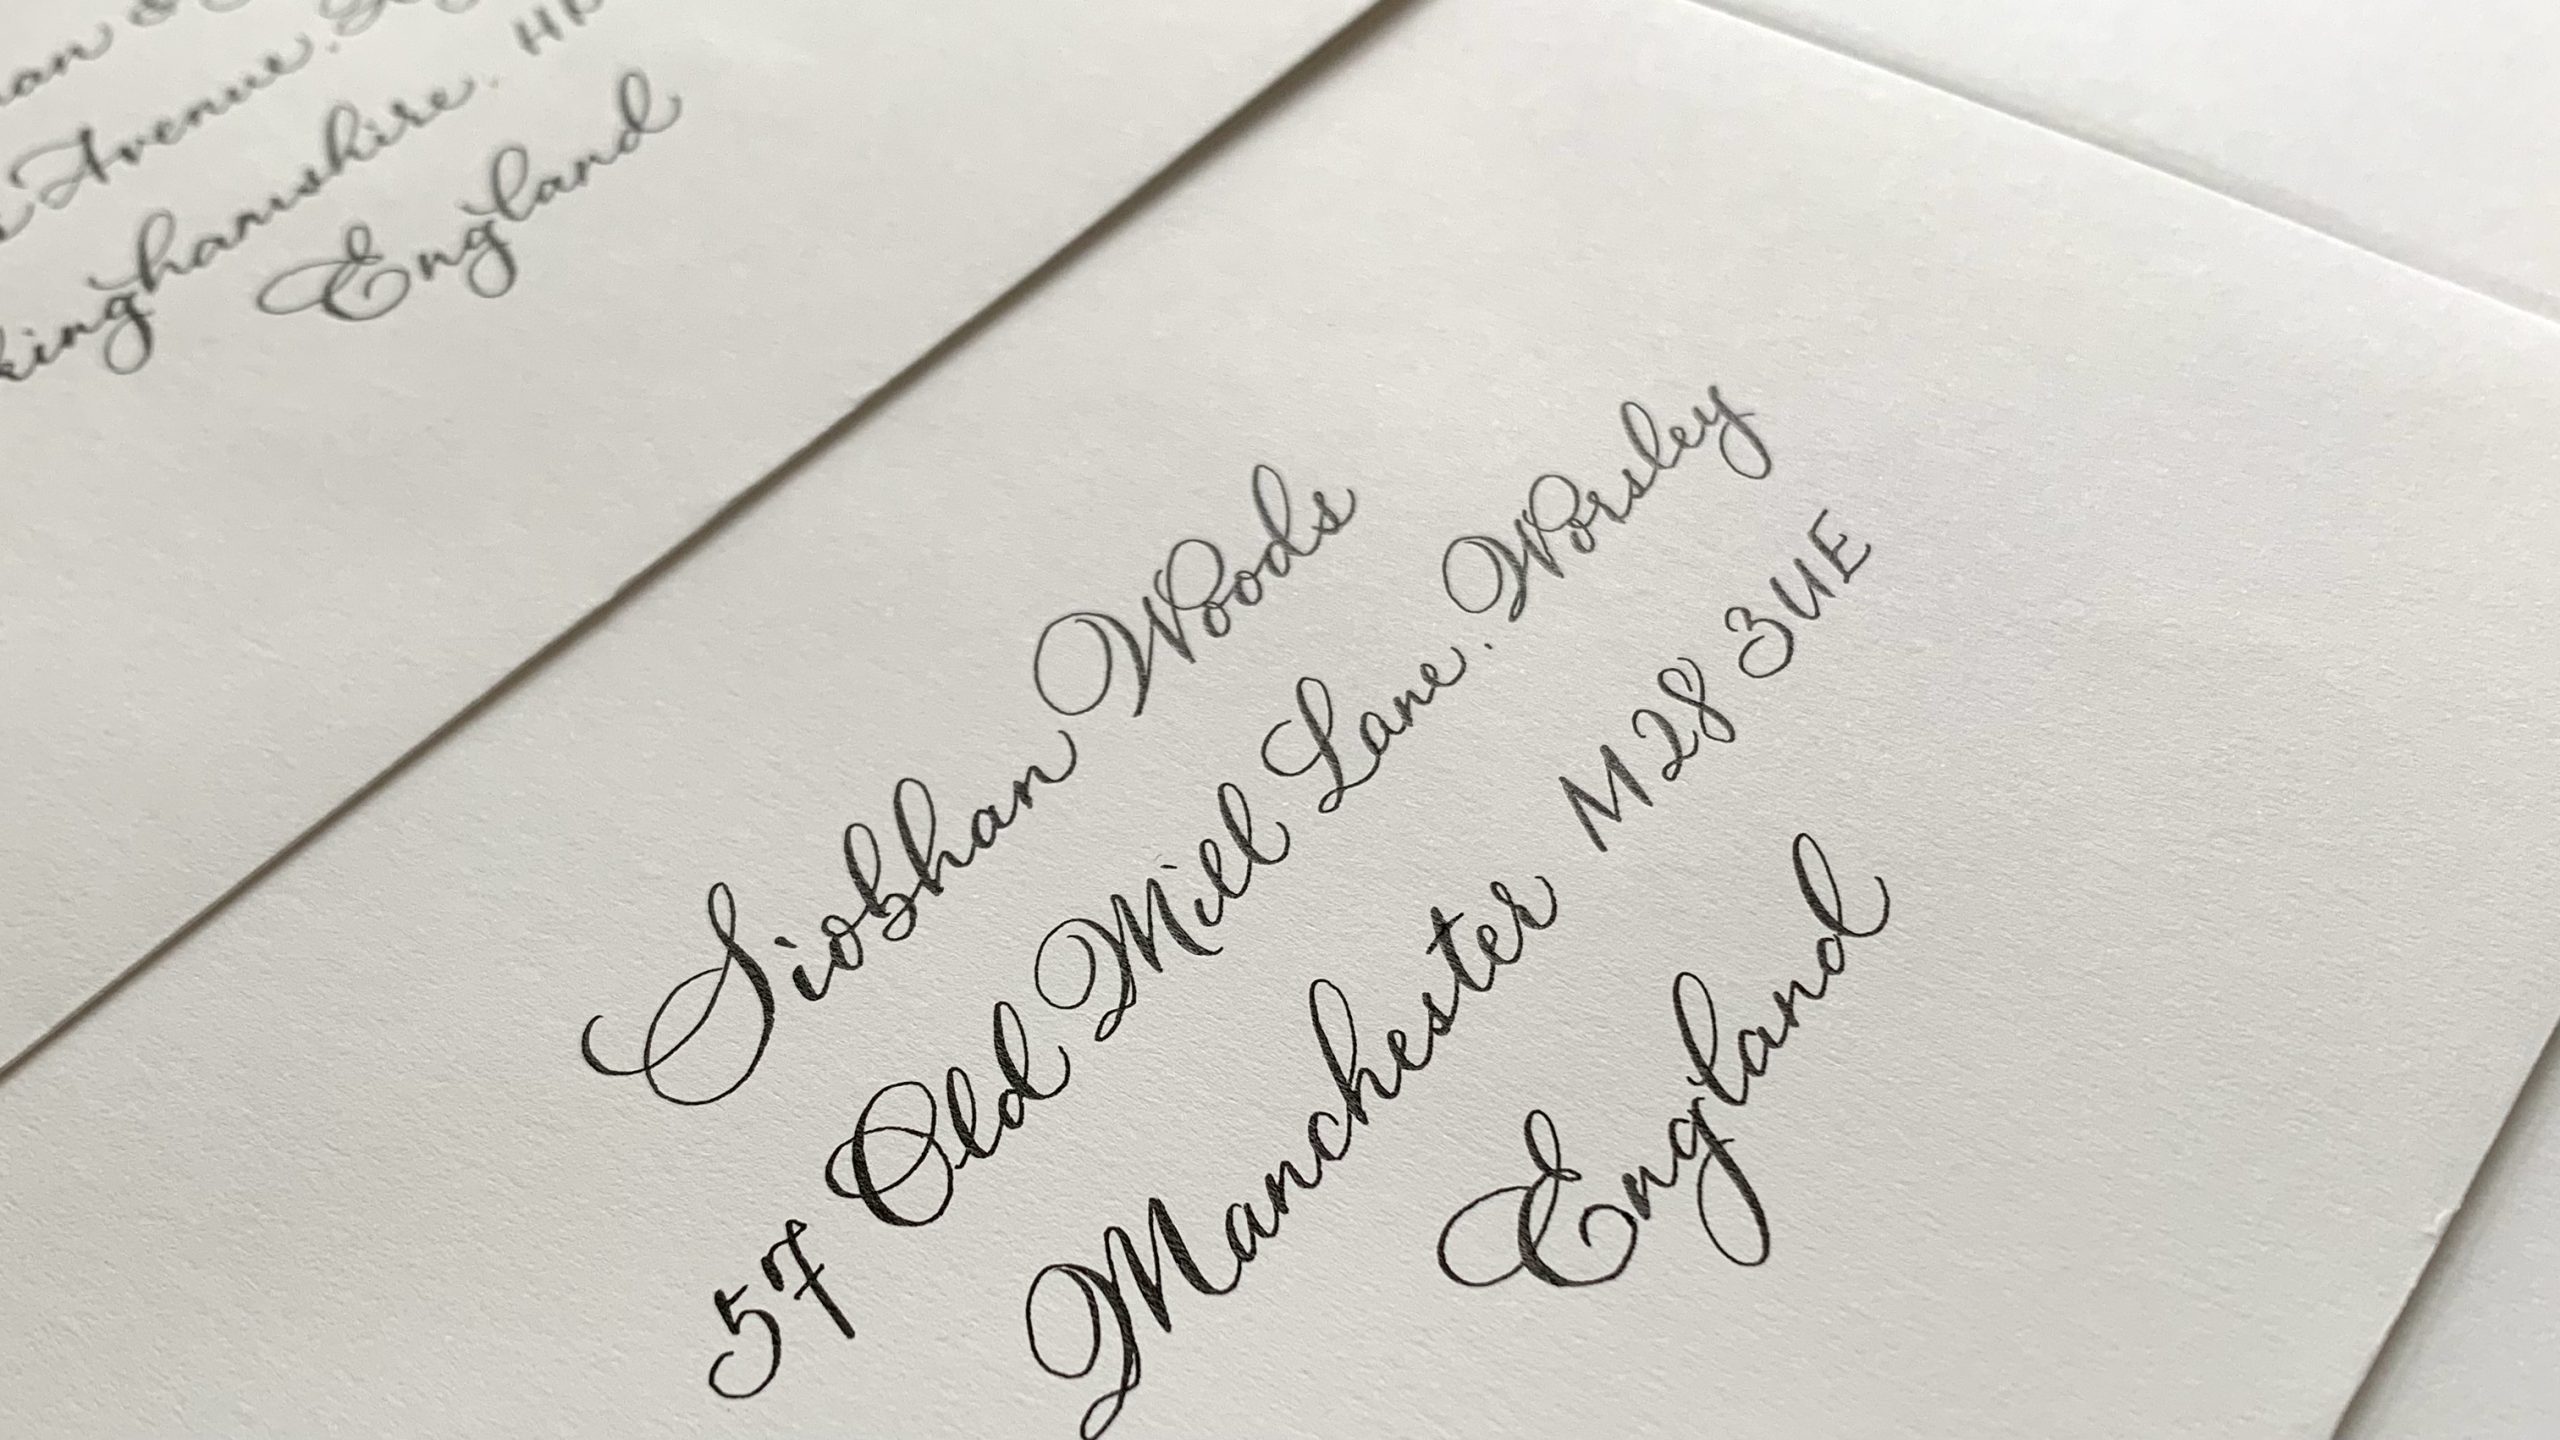 Avenue.
England
Siobhan Woods
57 Old Mill Lane. Worsley
Manchester M28 3UE
England